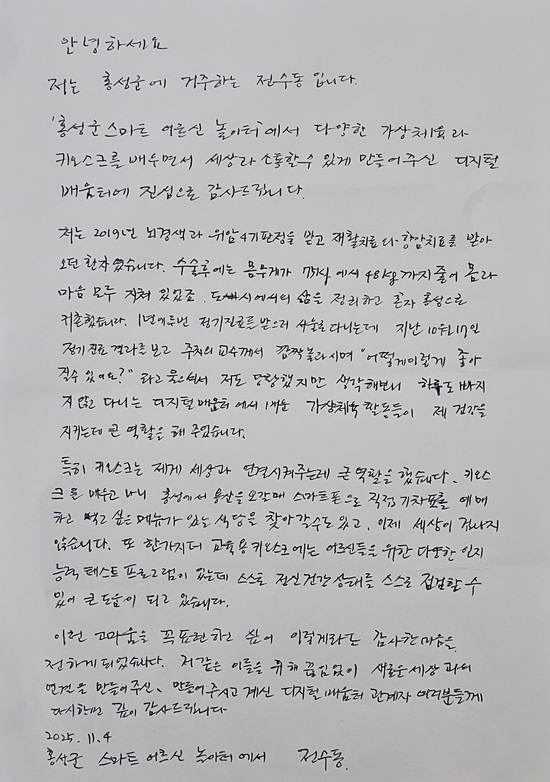 안녕하세요
저는 홍성군에 거주하는 전수동 입니다.
'홍성군 스마트 어르신 놀이터'에서 다양한 가상체육과
키오스크를 배우면서 세상과 소통할수 있게 만들어 주신 디지털
배움터에 진심으로 감사드립니다.
저는 2019년 뇌경색과 위암4기판정을 받고 재활치료와 항암치료를 받아
오던 환자였습니다. 수술후에는 몸무게가 78kg에서 48kg까지 줄어 몸과
마음 모두 지쳐 있었죠. 도시에서의 삶을 정리하고 혼자 홍성으로
귀촌했습니다. 1년에 두번 정기진료를 받으러 서울로 다니는데 지난 10월 17일
정기진료 결과를 보고 주치의 교수께서 깜짝놀라시며 "어떻게 이렇게 좋아
질수 있어요?" 라고 물으셔서 저도 당황했지만 생각해보니 하루도 빠지
지 않고 다니는 디지털 배움터에서 배운 가상체육 활동들이 제 건강을
지키는데 큰 역할을 해 주었습니다.
특히 키오스크는 제게 세상과 연결시켜주는데 큰 역할을 했습니다. 키오스
크를 배우고 나니 홍성에서 용산을 오갈때 스마트폰으로 직접 기차표를 예매
하고 먹고 싶은 메뉴가 있는 식당을 찾아갈수도 있고, 이제 세상이 겁나지
않습니다. 또 한가지더 교육용 키오스크에는 어르신들을 위한 다양한 인지
능력 테스트 프로그램이 있는데 스스로 정신건강 상태를 스스로 점검할 수
있어 큰 도움이 되고 있습니다.
이런 고마움을 꼭 표현하고 싶어 이렇게라도 감사한 마음을
전하게 되었습니다. 저 같은 이들을 위해 끊임없이 새로운 세상과의
연결을 만들어주신, 만들어 주시고 계신 디지털 배움터 관계자 여러분들께
다시한번 깊이 감사드립니다
2025. 11. 4
홍성군 스마트 어르신 놀이터에서 전수동.